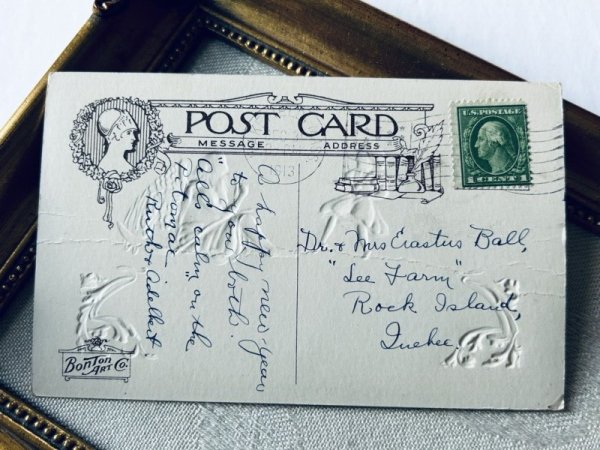 POST CARD
MESSAGE ADDRESS
U.S. POSTAGE
1 CENT 1
13
A happy new year
to you both.
"All calm" on the
Potomac
Ruth & Adelbert
Dr. & Mrs Erastus Ball,
"Lee Farm"
Rock Island,
Quebec.
BonTon
ART Co.